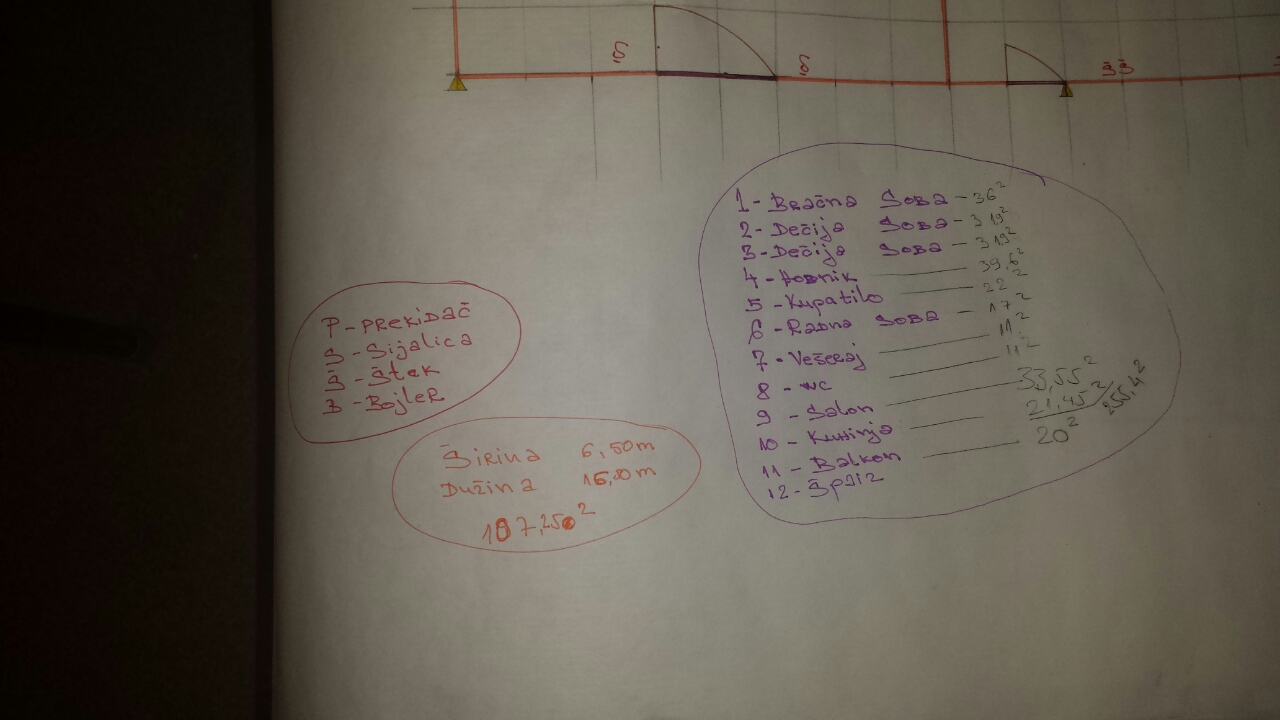 Š
Š
ŠŠ
1 - Bračna Soba - 36²
2 - Dečija Soba - 319²
3 - Dečija Soba - 319²
4 - Hodnik 39,6²
5 - Kupatilo 22²
6 - Radna Soba - 17²
7 - Vešeraj 11²
8 - WC 11²
9 - Salon 33,55²
10 - Kuhinja 21,45² / 255,4²
11 - Balkon 20²
12 - Špajz
P - PREKIDAČ
S - Sijalica
Š - Štek
B - Bojler
Širina 6,50m
Dužina
107,25²